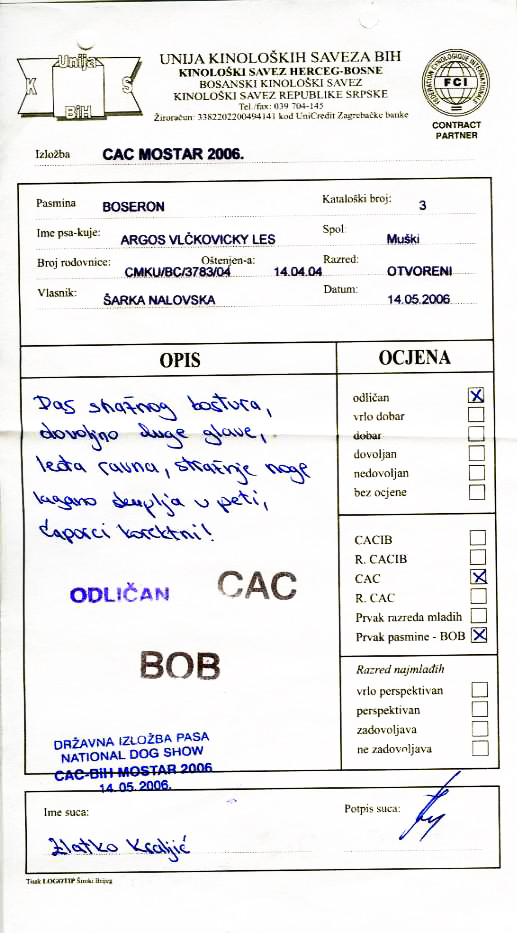 Unija
K S
BiH
UNIJA KINOLOŠKIH SAVEZA BIH
KINOLOŠKI SAVEZ HERCEG-BOSNE
BOSANSKI KINOLOŠKI SAVEZ
KINOLOŠKI SAVEZ REPUBLIKE SRPSKE
Tel./fax: 039 704-145
Žiroračun: 3382202200494141 kod UniCredit Zagrebačke banke
FEDERATION CYNOLOGIQUE INTERNATIONALE
FCI
CONTRACT
PARTNER
Izložba CAC MOSTAR 2006.
Pasmina BOSERON Kataloški broj: 3
Ime psa-kuje: ARGOS VLČKOVICKY LES Spol: Muški
Broj rodovnice: CMKU/BC/3783/04 Oštenjen-a: 14.04.04 Razred: OTVORENI
Vlasnik: ŠARKA NALOVSKA Datum: 14.05.2006
OPIS
Pas snažnog kostura,
dovoljno duge glave,
leđa ravna, stražnje noge
lagano u peti,
čaporci korektni!
ODLIČAN CAC
BOB
DRŽAVNA IZLOŽBA PASA
NATIONAL DOG SHOW
CAC-BIH MOSTAR 2006
14.05.2006.
OCJENA
odličan X
vrlo dobar
dobar
dovoljan
nedovoljan
bez ocjene
CACIB
R. CACIB
CAC X
R. CAC
Prvak razreda mladih
Prvak pasmine - BOB X
Razred najmlađih
vrlo perspektivan
perspektivan
zadovoljava
ne zadovoljava
Ime suca: Potpis suca:
Zlatko Kraljić
Tisak LOGOTIP Široki Brijeg